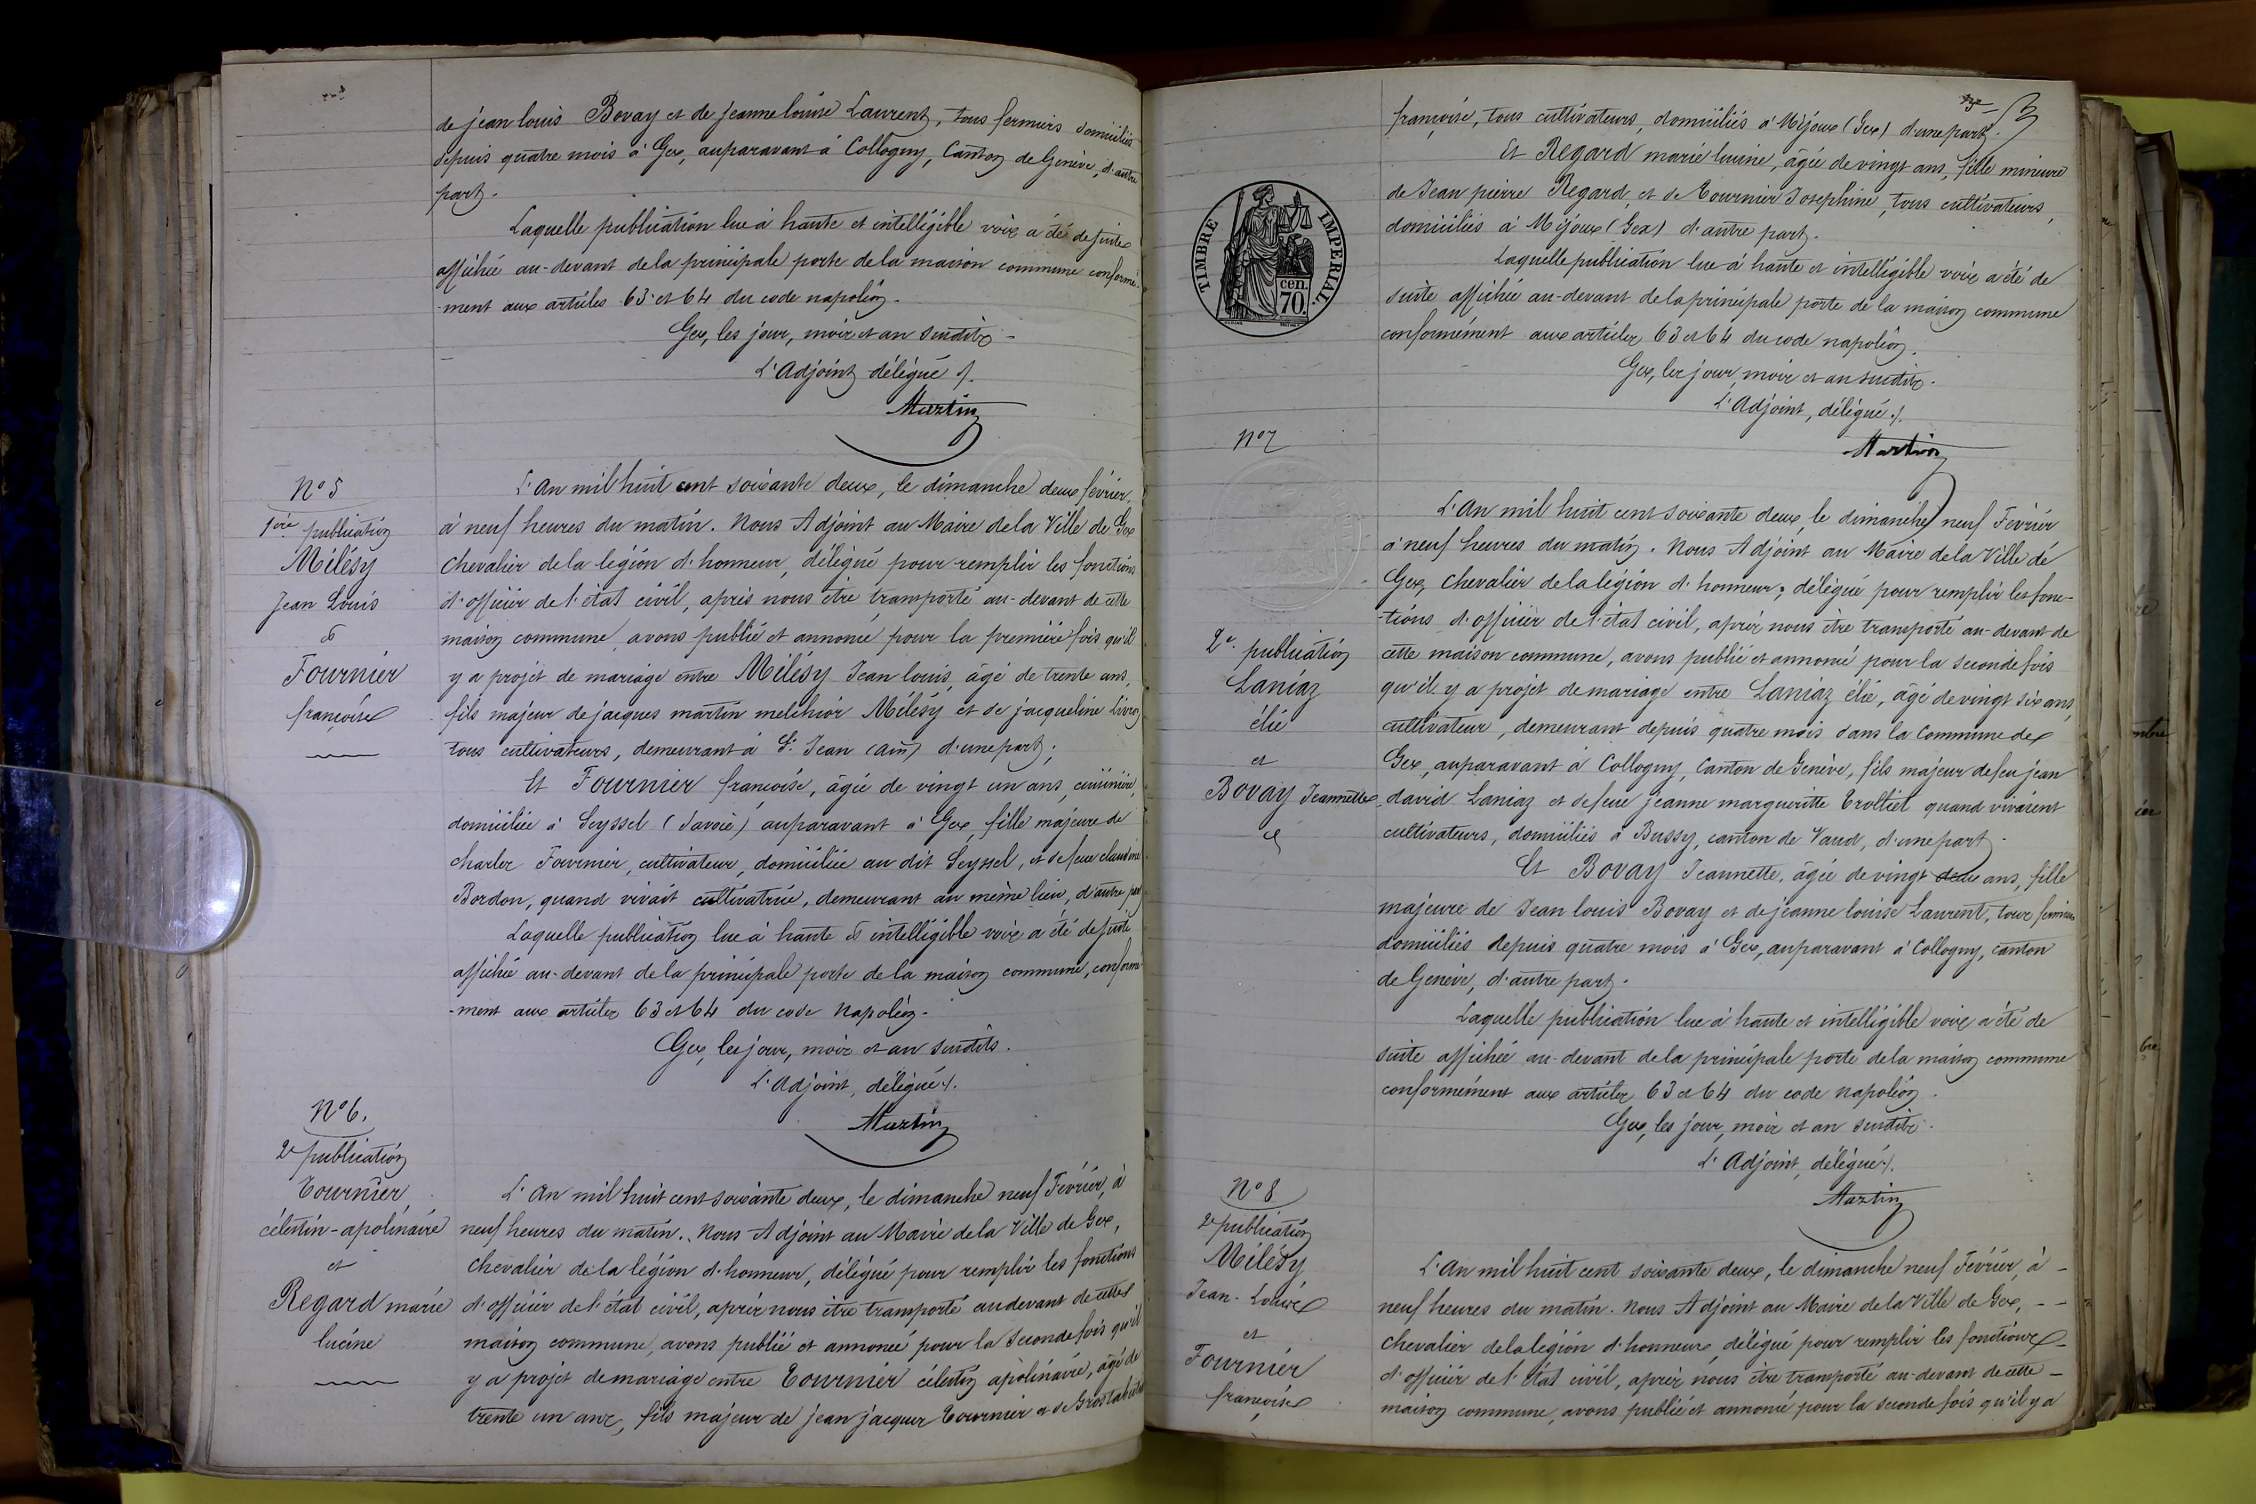 de jean louis Bovay et de jeanne louise Laurent, tous fermiers domiciliés
depuis quatre mois à Gex, auparavant à Collogny, Canton de Genève, d'autre
part.
Laquelle publication lue à haute et intelligible voix a été de suite
affichée au-devant de la principale porte de la maison commune conformé-
-ment aux articles 63 et 64 du code napoléon.
Gex, les jour, mois et an susdits -
L'Adjoint délégué /.
Martin
N° 5
1ère publication
Mélésy
Jean Louis
et
Fournier
françoise
L'An mil huit cent soixante deux, le dimanche deux février,
à neuf heures du matin. Nous Adjoint au Maire de la Ville de Gex
Chevalier de la légion d'honneur, délégué pour remplir les fonctions
d'officier de l'état civil, après nous être transporté au-devant de cette
maison commune, avons publié et annoncé pour la première fois qu'il
y a projet de mariage entre Mélésy Jean louis, âgé de trente ans,
fils majeur de jacques martin melchior Mélésy et de jacqueline Livron
tous cultivateurs, demeurant à St Jean (Ain) d'une part;
Et Fournier françoise, âgée de vingt un ans, cuisinière,
domiciliée à Seyssel (Savoie) auparavant à Gex, fille majeure de
charles Fournier, cultivateur, domiciliée au dit Seyssel, et de feue claudine
Bordon, quand vivait cultivatrice, demeurant au même lieu, d'autre part
Laquelle publication lue à haute et intelligible voix a été de suite
affichée au-devant de la principale porte de la maison commune, conformé-
-ment aux articles 63 et 64 du code Napoléon.
Gex, les jour, mois et an susdits.
L'Adjoint, délégué /.
Martin
N° 6.
2e publication
Tournier
célestin-apolinaire
et
Regard marie
lucine
L'An mil huit cent soixante deux, le dimanche neuf Février, à
neuf heures du matin. Nous Adjoint au Maire de la Ville de Gex,
Chevalier de la légion d'honneur, délégué pour remplir les fonctions
d'officier de l'état civil, après nous être transporté au devant de cette
maison commune, avons publié et annoncé pour la seconde fois qu'il
y a projet de mariage entre Tournier célestin apolinaire, âgé de
trente un ans, fils majeur de jean jacques Tournier et de
françoise, tous cultivateurs, domiciliés à Mijoux (Gex) d'une part.
Et Regard marie lucine, âgée de vingt ans, fille mineure
de Jean pierre Regard et de Tournier Josephine, tous cultivateurs,
domiciliés à Mijoux (Gex) d'autre part.
Laquelle publication lue à haute et intelligible voix a été de
suite affichée au-devant de la principale porte de la maison commune
conformément aux articles 63 et 64 du code napoléon.
Gex, les jour, mois et an susdits.
L'Adjoint, délégué /.
Martin
TIMBRE IMPERIAL.
cen.
70.
N° 7
2e publication
Laniaz
élie
et
Bovay Jeannette
L'An mil huit cent soixante deux, le dimanche neuf Février
à neuf heures du matin. Nous Adjoint au Maire de la Ville de
Gex, Chevalier de la légion d'honneur, délégué pour remplir les fonc-
-tions d'officier de l'état civil, après nous être transporté au-devant de
cette maison commune, avons publié et annoncé pour la seconde fois
qu'il y a projet de mariage entre Laniaz élie, âgé de vingt six ans,
cultivateur, demeurant depuis quatre mois dans la Commune de
Gex, auparavant à Collogny, Canton de Genève, fils majeur de feu jean
david Laniaz et de feue jeanne margueritte Trolliet quand vivaient
cultivateurs, domiciliés à Bussy, canton de Vaud, d'une part.
Et Bovay Jeannette, âgée de vingt deux ans, fille
majeure de Jean louis Bovay et de jeanne louise Laurent, tous fermiers
domiciliés depuis quatre mois à Gex, auparavant à Collogny, canton
de Genève, d'autre part.
Laquelle publication lue à haute et intelligible voix a été de
suite affichée au-devant de la principale porte de la maison commune
conformément aux articles 63 et 64 du code napoléon.
Gex, les jour, mois et an susdits.
L'Adjoint, délégué /.
Martin
N° 8
2e publication
Mélésy
Jean-Louis
et
Fournier
françoise
L'An mil huit cent soixante deux, le dimanche neuf Février, à -
neuf heures du matin. Nous Adjoint au Maire de la Ville de Gex, - -
Chevalier de la légion d'honneur, délégué pour remplir les fonctions -
d'officier de l'état civil, après nous être transporté au-devant de cette -
maison commune, avons publié et annoncé pour la seconde fois qu'il y a